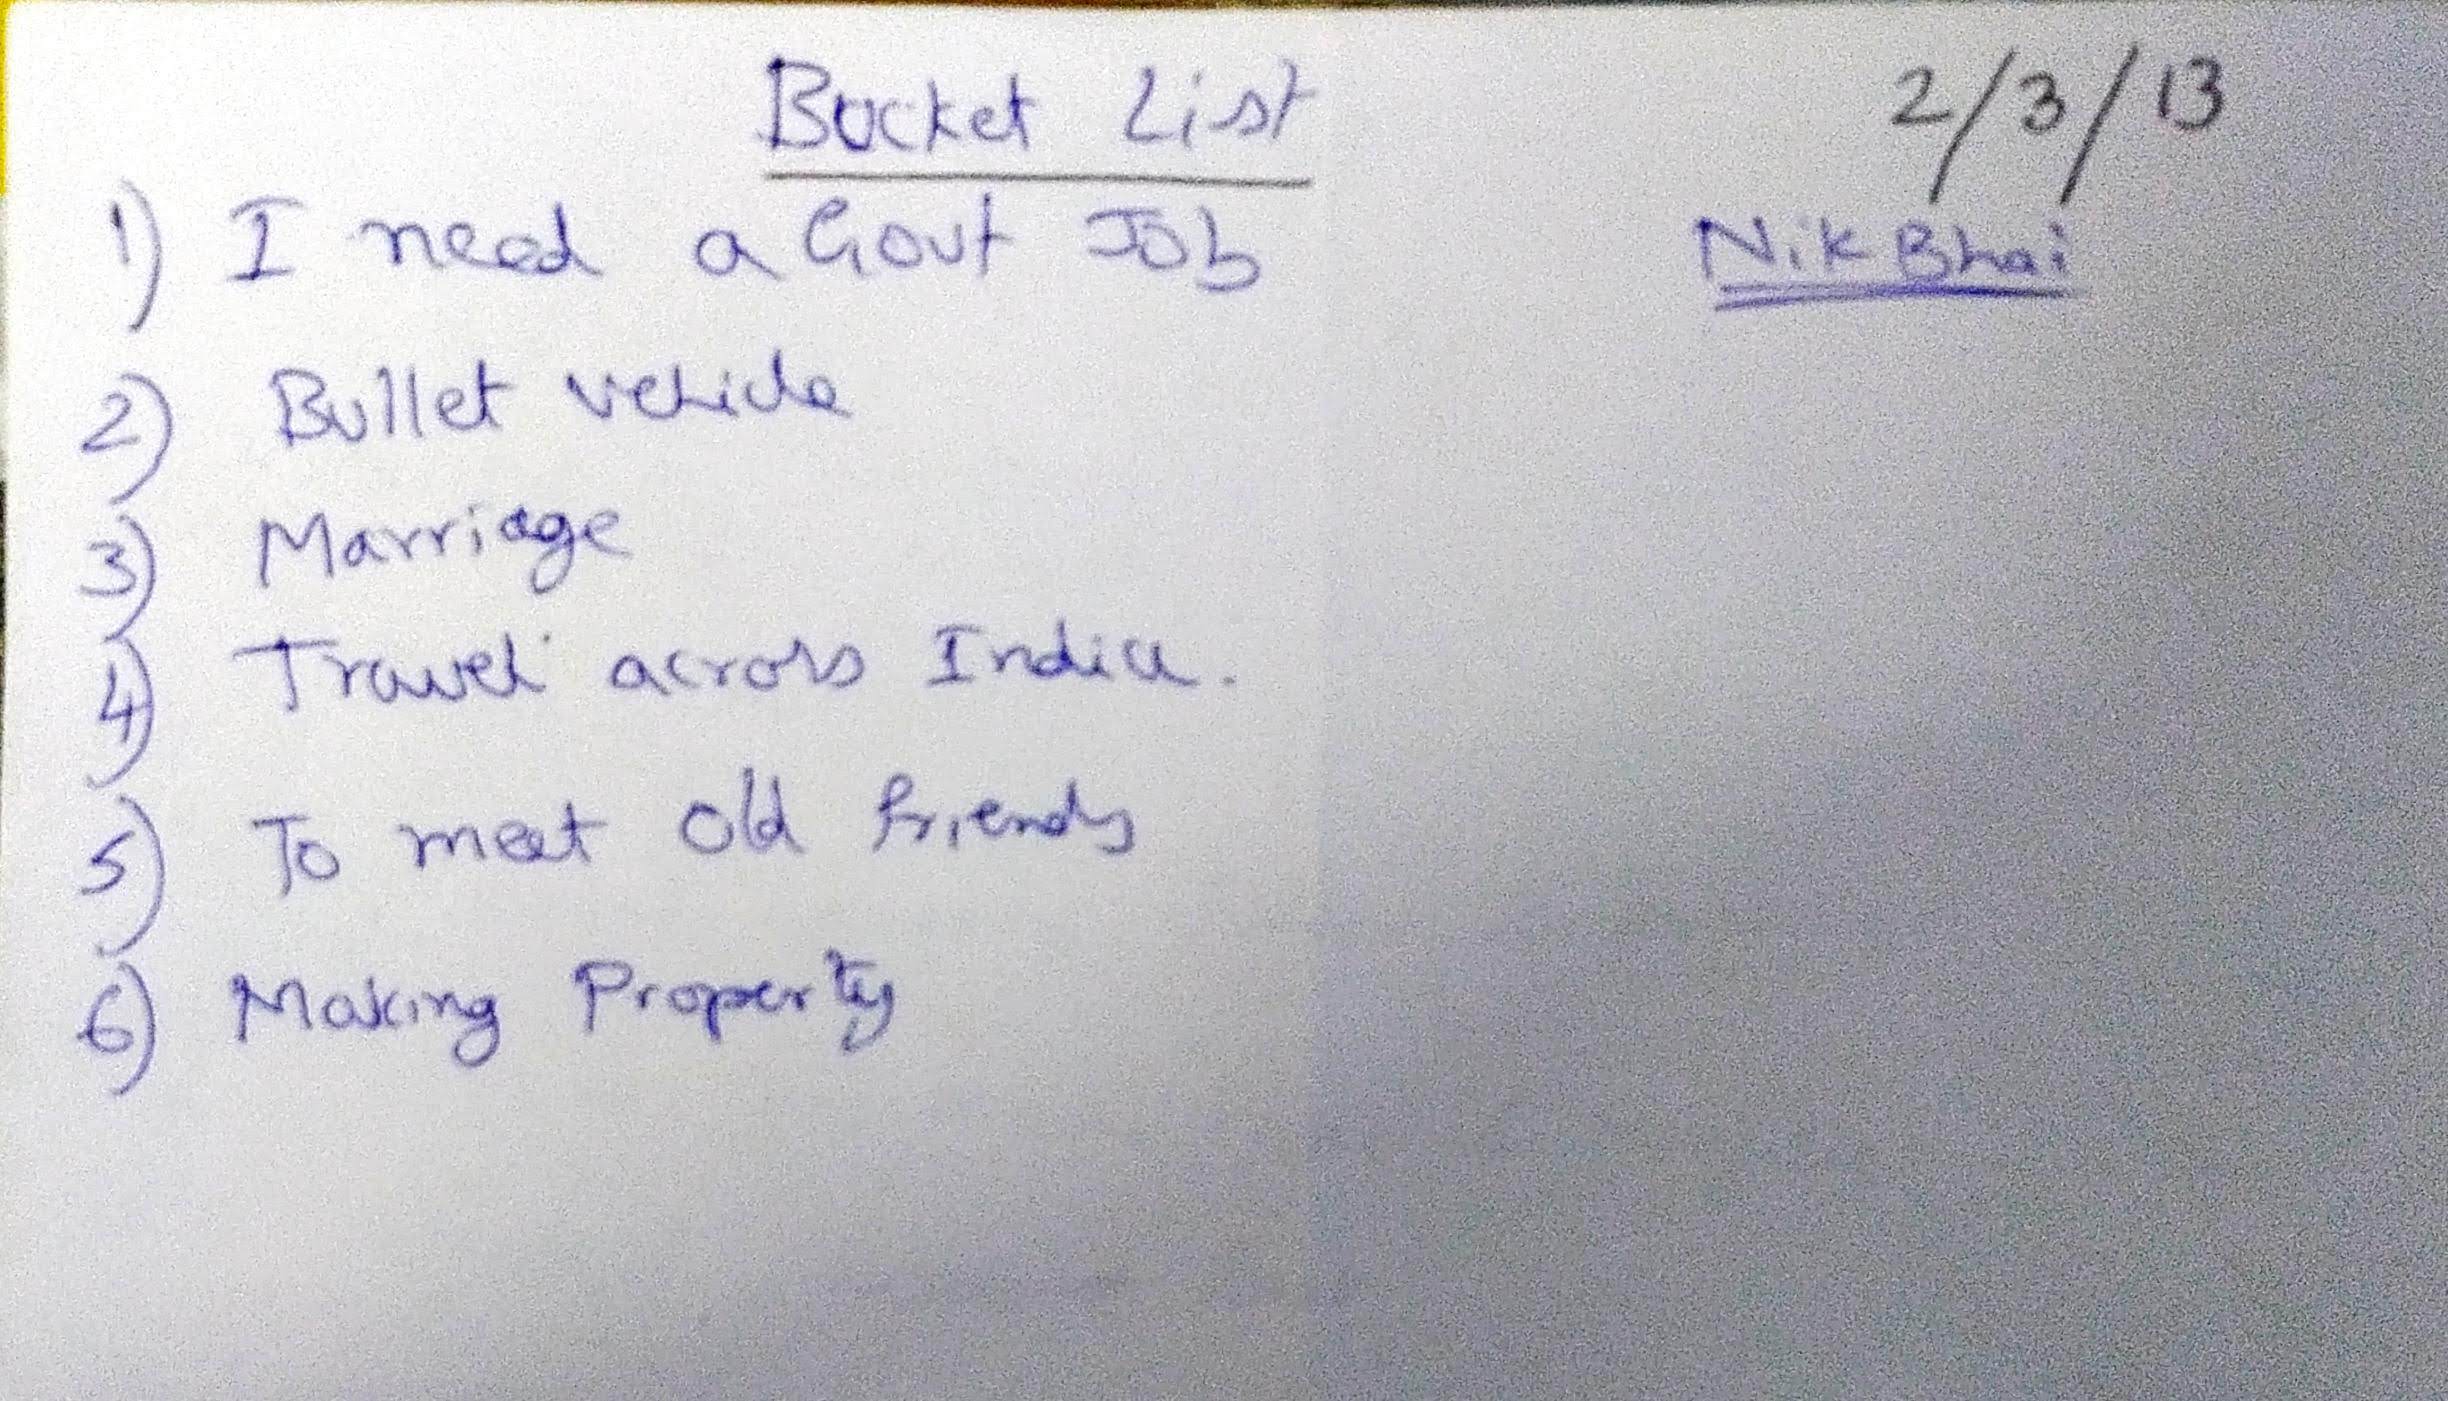 Bucket List
2/3/13
Nik Bhai
1) I need a Govt Job
2) Bullet vehicle
3) Marriage
4) Travel across India.
5) To meet old friends
6) Making Property